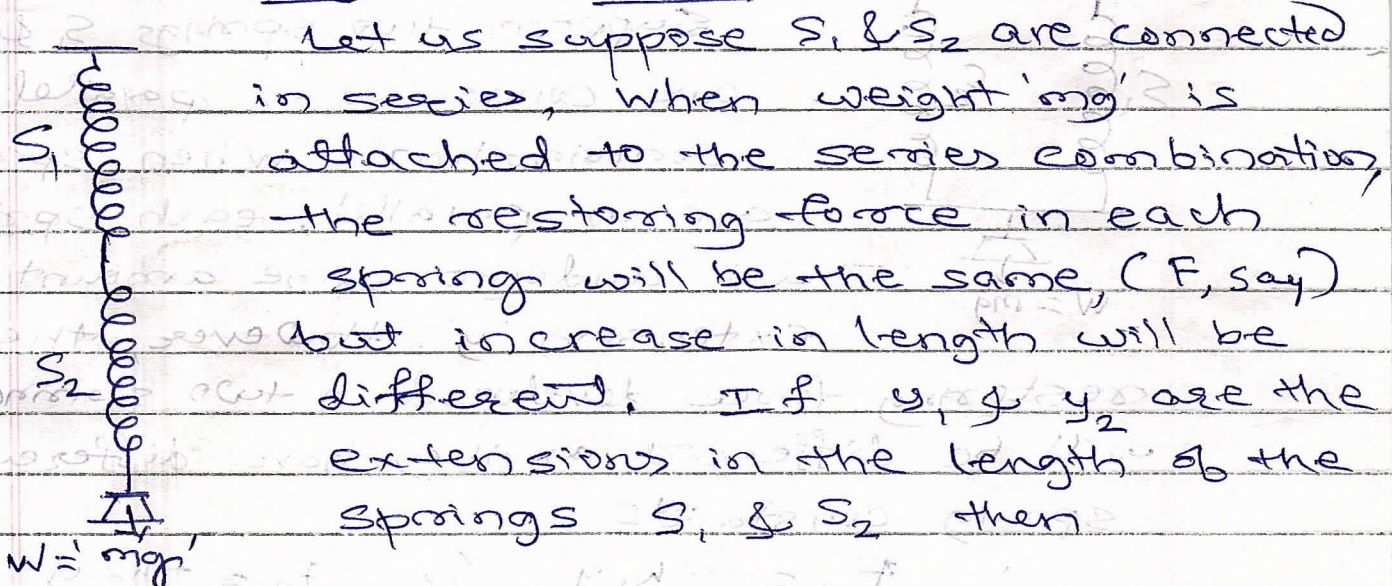 Let us suppose S₁ & S₂ are connected
in series, when weight 'mg' is
S₁ attached to the series combination,
the restoring force in each
spring will be the same, (F, say)
but increase in length will be
S₂ different. If y₁ & y₂ are the
extensions in the length of the
springs S₁ & S₂ then
W = 'mg'